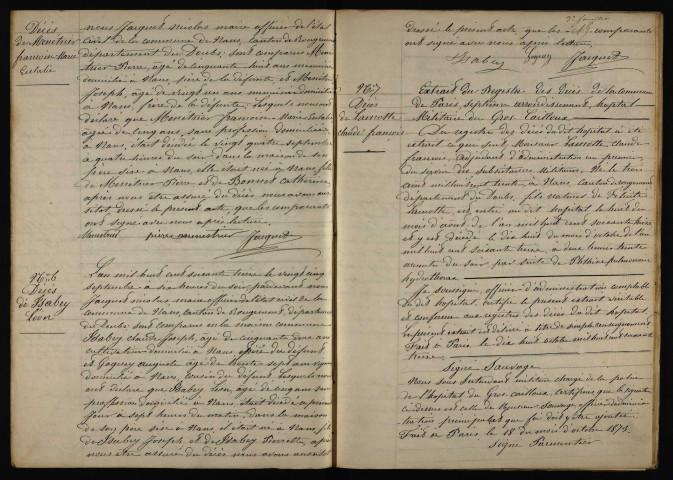 Décès
de Menetrier
françoise Marie
Eulalie
nous Jacquet Nicolas maire officier de l'état
civil de la commune de Nans, canton de Rougemont
département du Doubs, sont comparus Mene
trier Pierre, âgé de cinquante huit ans meunier
domicilié à Nans, père de la défunte et Menetrier
Joseph, âgé de vingt un ans meunier domicilié
à Nans, frère de la défunte. Lesquels nous ont
déclaré que Menetrier Françoise Marie Eulalie
âgée de cinq ans, sans profession domiciliée
à Nans, était décédée le vingt quatre septembre
à quatre heures du soir dans la maison de son
père sise à Nans, elle était née à Nans, fille
de Menetrier Pierre et de Bonnet Catherine
après nous être assuré du décès nous avons au
sitôt dressé le présent acte, que les comparants
ont signé avec nous après lecture.
Menetrier pierre menetrier Jacquet
N° 6
Décès
de Babey
Léon
L'an mil huit cent soixante treize le vingt cinq
septembre à six heures du soir, pardevant nous
Jacquet Nicolas maire officier de l'état civil de la
commune de Nans, canton de Rougemont, département
du Doubs sont comparus en la maison commune
Babey Claude Joseph, âgé de cinquante deux ans
cultivateur domicilié à Nans, père du défunt
et Gagney Auguste âgé de trente sept ans vigneron
domicilié à Nans, cousin du défunt. Lesquels nous
ont déclaré que Babey Léon, âgé de cinq ans sans
profession domicilié à Nans, était décédé ce présent
jour à sept heures du matin, dans la maison
de son père sise à Nans, il était né à Nans, fils
de Babey Joseph et de Babey Pierrette, après
nous être assuré du décès nous avons aussitôt
dressé le présent acte que les comparants
ont signé avec nous après lecture.
Babey Gagney Jacquet
N° 7
Décès
de Lamotte
claude françois
Extrait du Registre des décès de la commune
de Paris, septième arrondissement, hôpital
Militaire du Gros Caillou.
Du registre des décès du dit hôpital a été
extrait ce que suit, Monsieur Lamotte, Claude
François, adjudant d'administration en premier
du service des subsistances militaires. Né le trois
août mil huit cent trente à Nans, canton de Rougemont
département du Doubs, fils naturel de
Lamotte, est entré au dit hôpital le huit du
mois d'août de l'an mil huit cent soixante treize
et y est décédé le dix huit du mois d'octobre de l'an
mil huit cent soixante treize, à deux heures trente
minutes du soir par suite de Phthisie pulmonaire
hydrothorax
Je soussigné, officier d'administration comptable
du dit hôpital, certifie le présent extrait véritable
et conforme aux registres des décès du dit hôpital
le présent extrait est délivré à titre de simple renseignement
Fait à Paris le dix huit octobre mil huit cent soixante
treize
Signé Sauvage
Nous sous intendant militaire chargé de la police
de l'hôpital du Gros caillou, certifions que la signature
ci dessus est celle de Monsieur Sauvage officier d'administra
tion principal et que foi doit y être ajoutée.
Fait à Paris le 18 du mois d'octobre 1873.
Signé Parmentier